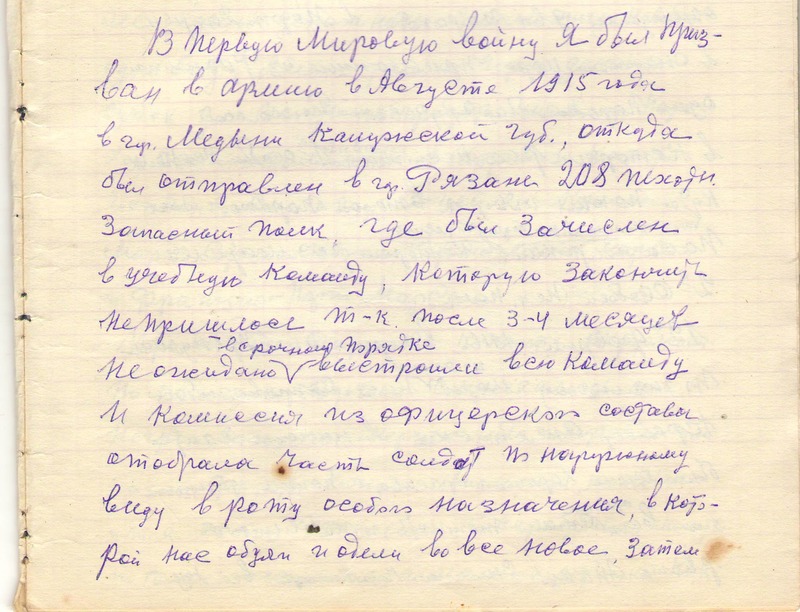 В Первую Мировую войну Я был Приз-
ван в армию в Августе 1915 года
в гр. Медыни Калужской Губ., откуда
был отправлен в гр. Рязань 208 пехотн.
Запасный полк, где был Зачислен
в учебную Команду, Которую Закончить
не пришлось т-к. после 3-4 месяцев
в срочном порядке
неожидано выстроили всю Команду
И Комиссия из офицерского состава
отобрала Часть солдат по наружному
виду в роту особого назначения, в кото-
рой нас обули и одели во все новое, Затем